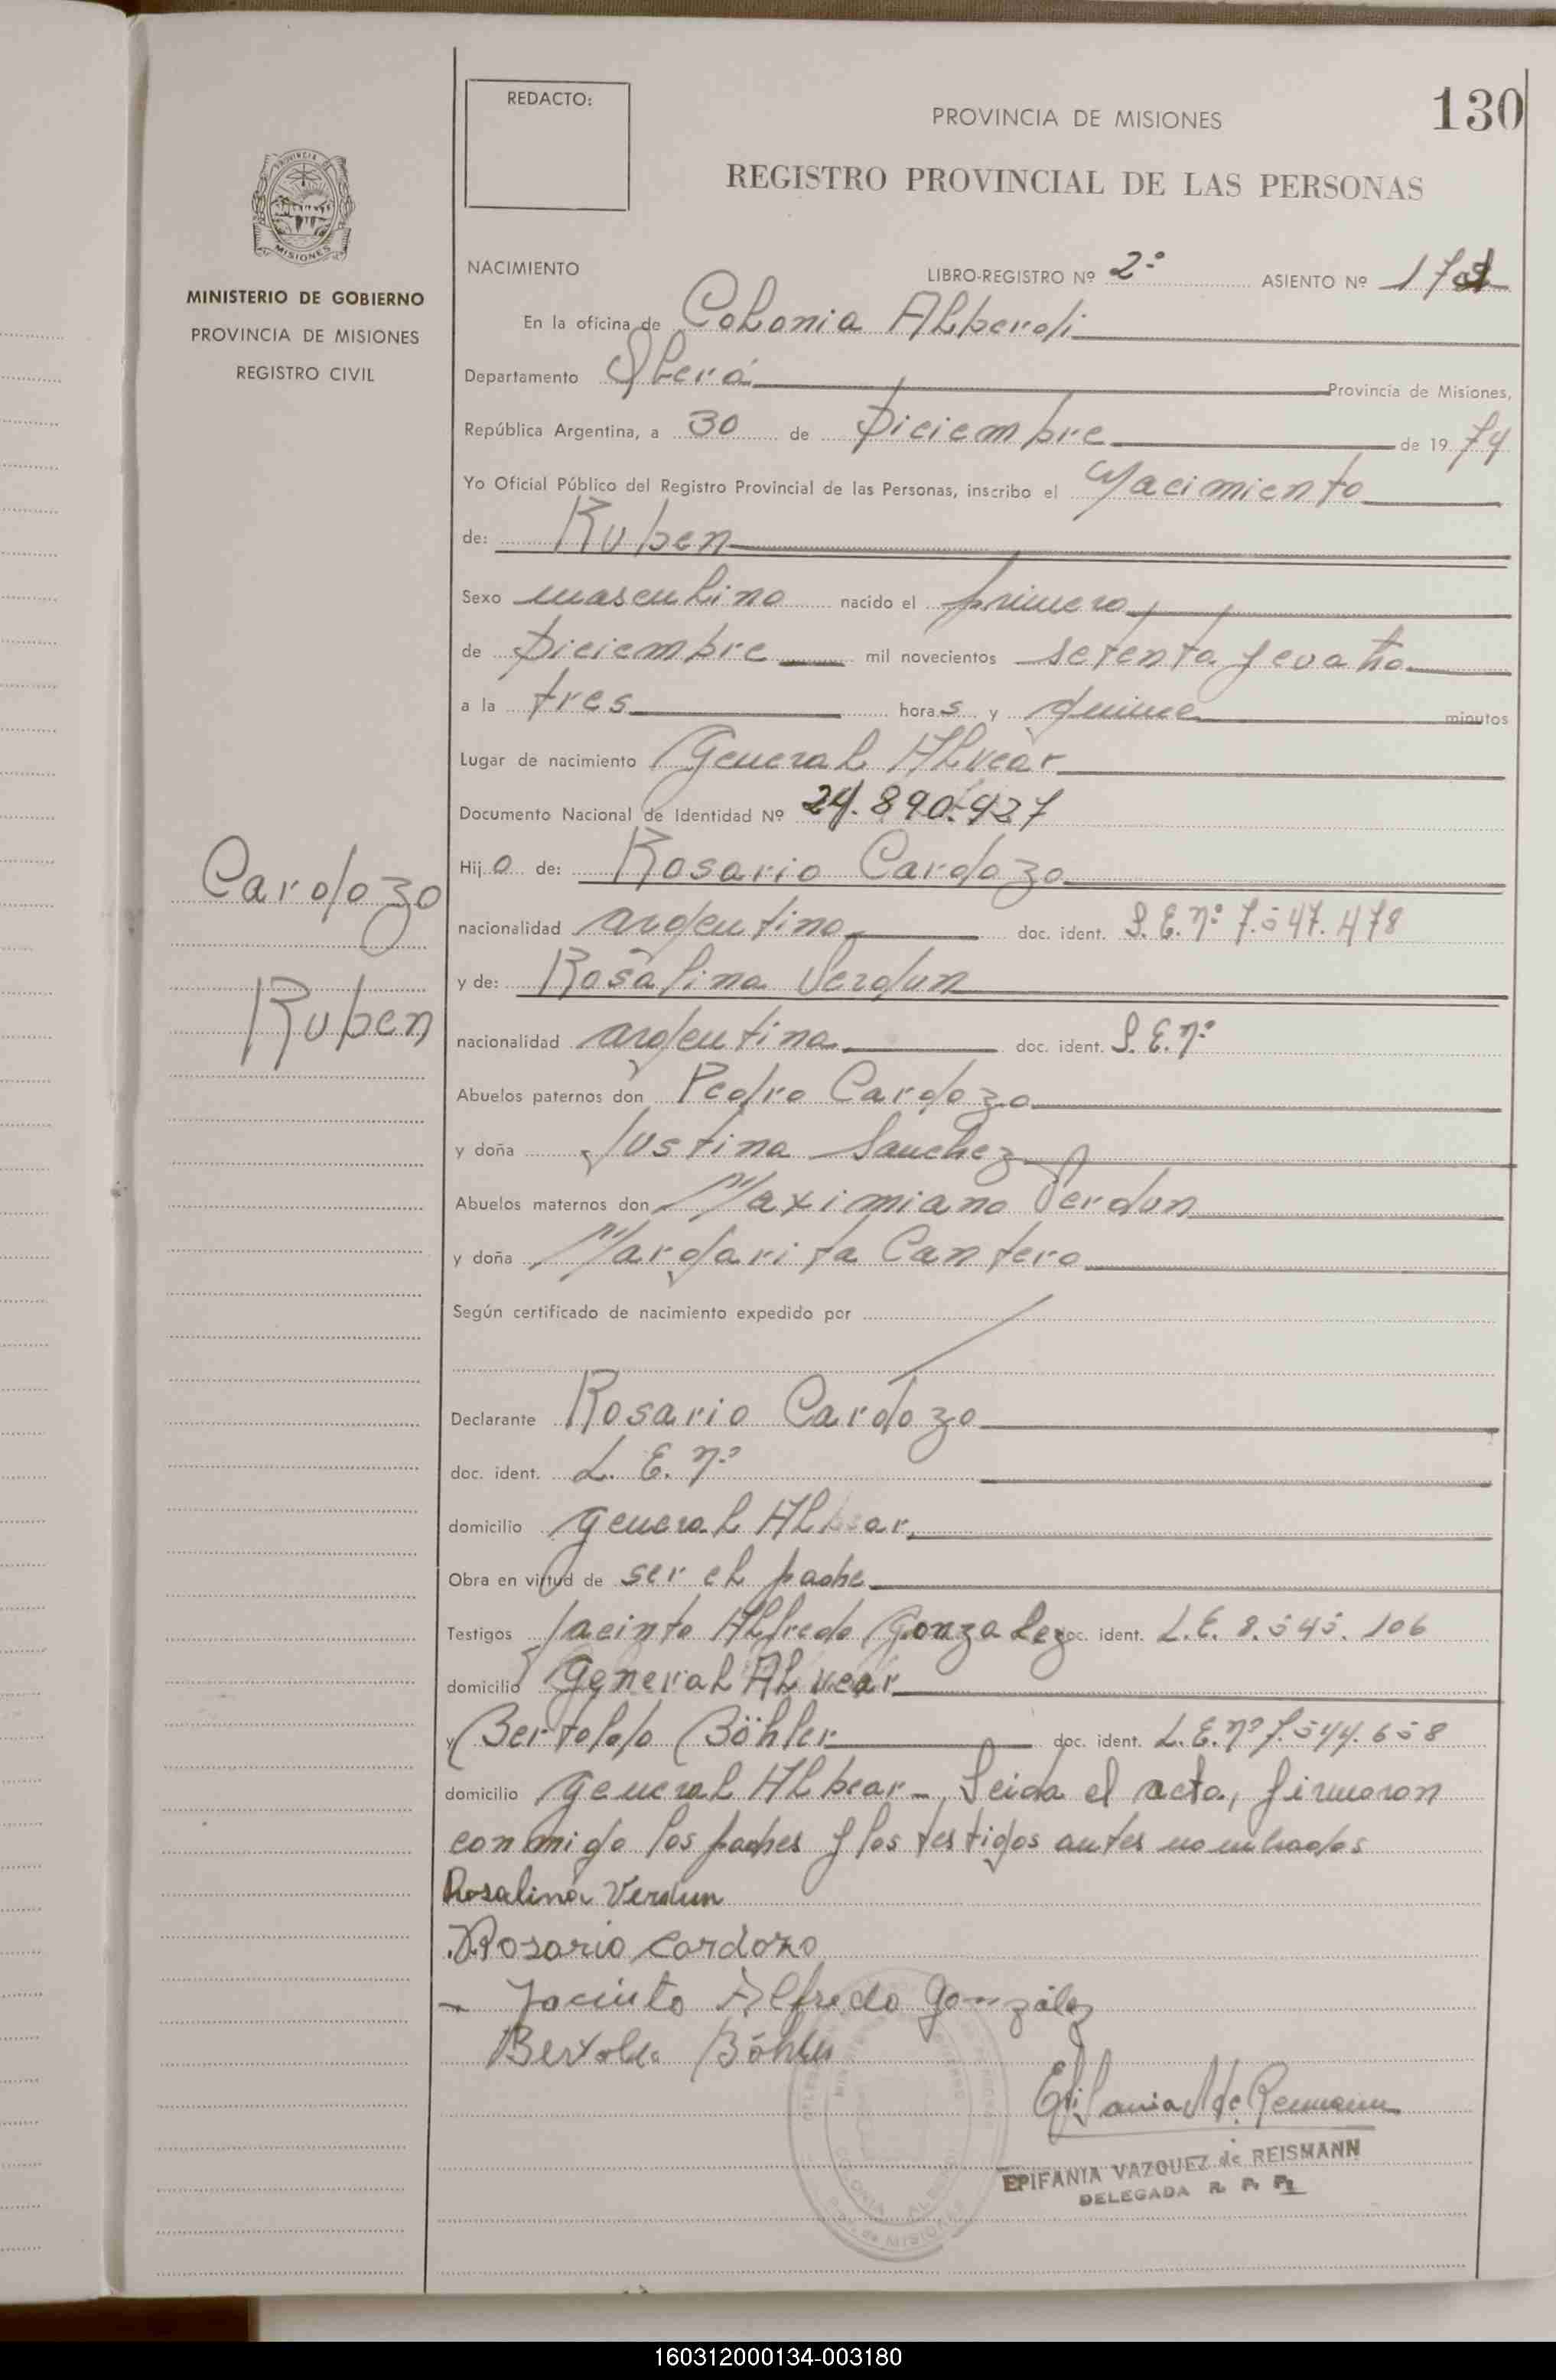 REDACTO:
PROVINCIA DE MISIONES
130
REGISTRO PROVINCIAL DE LAS PERSONAS
PROVINCIA DE
MISIONES
MINISTERIO DE GOBIERNO
PROVINCIA DE MISIONES
REGISTRO CIVIL
Cardozo
Ruben
NACIMIENTO LIBRO-REGISTRO Nº 2º ASIENTO Nº
En la oficina de Colonia Alberdi
Departamento Oberá Provincia de Misiones,
República Argentina, a 30 de Diciembre de 1974
Yo Oficial Público del Registro Provincial de las Personas, inscribo el Nacimiento
de: Ruben
Sexo masculino nacido el primero
de Diciembre mil novecientos setenta y cuatro
a la tres horas y quince minutos
Lugar de nacimiento General Alvear
Documento Nacional de Identidad Nº 24.890.927
Hijo de: Rosario Cardozo
nacionalidad argentino doc. ident. L. E. nº 7.547.478
y de: Rosalina Verdun
nacionalidad argentina doc. ident. L. E. nº
Abuelos paternos don Pedro Cardozo
y doña Justina Sanchez
Abuelos maternos don Maximiano Verdun
y doña Margarita Cantero
Según certificado de nacimiento expedido por
Declarante Rosario Cardozo
doc. ident. L. E. nº
domicilio General Albear
Obra en virtud de ser el padre
Testigos Jacinto Alfredo Gonzalez doc. ident. L.E. 8.545.106
domicilio General Alvear
y Bertoldo Böhler doc. ident. L.E. nº 7.544.658
domicilio General Albear - Leida el acta, firmaron
conmigo los padres y los testigos antes nombrados
Rosalina Verdun
Rosario Cardozo
Jacinto Alfredo González
Bertoldo Böhler
EPIFANIA VAZQUEZ de REISMANN
DELEGADA R. P. P.
160312000134-003180